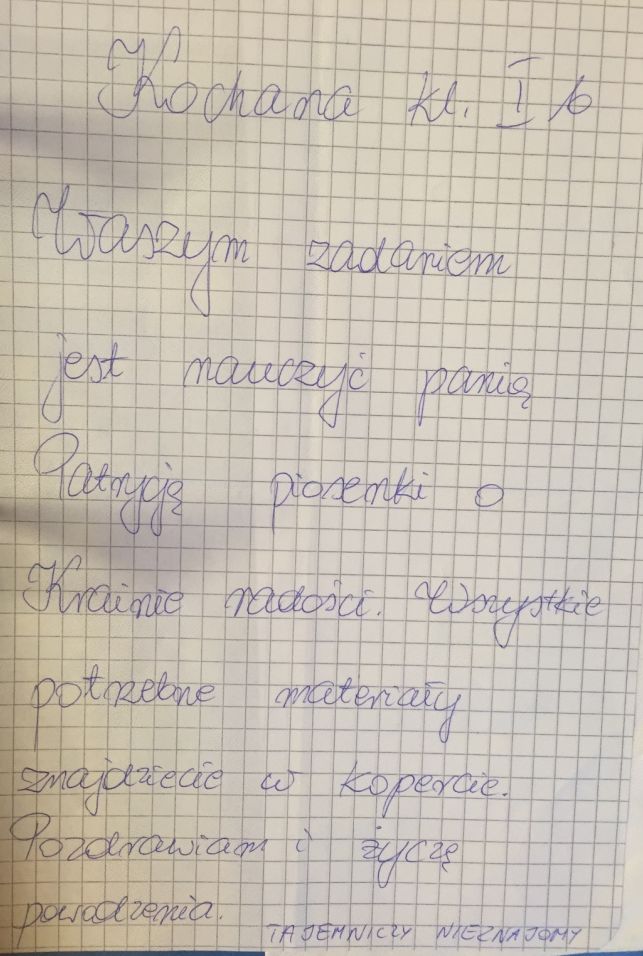 Kochana kl. I b
Waszym zadaniem
jest nauczyć panią
Patrycję piosenki o
Krainie radości. Wszystkie
potrzebne materiały
znajdziecie w kopercie.
Pozdrawiam i życzę
powodzenia.
TAJEMNICZY NIEZNAJOMY